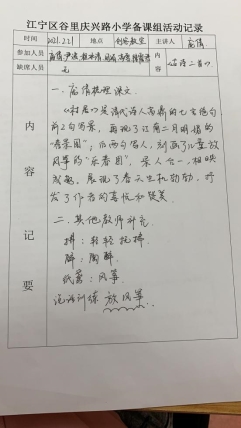 江宁区谷里庆兴路小学备课组活动记录
时间 2021.2.21 地点 创客教室 主讲人 高倩
参加人员 高倩
内容 《古诗二首》
缺席人员 无
内容记要
一、高倩梳理课文.
《村居》是清代诗人高鼎的七言绝句
前2句写景,再现了江南二月明媚的
“春景图”;后两句写人,刻画了儿童放
风筝的“乐春图”,景人合一,相映
成趣,展现了春天生机勃勃,抒
发了作者的喜悦和赞美.
二、其他教师补充.
拂:轻轻抚拂
醉:陶醉
纸鸢:风筝
说话训练 放风筝